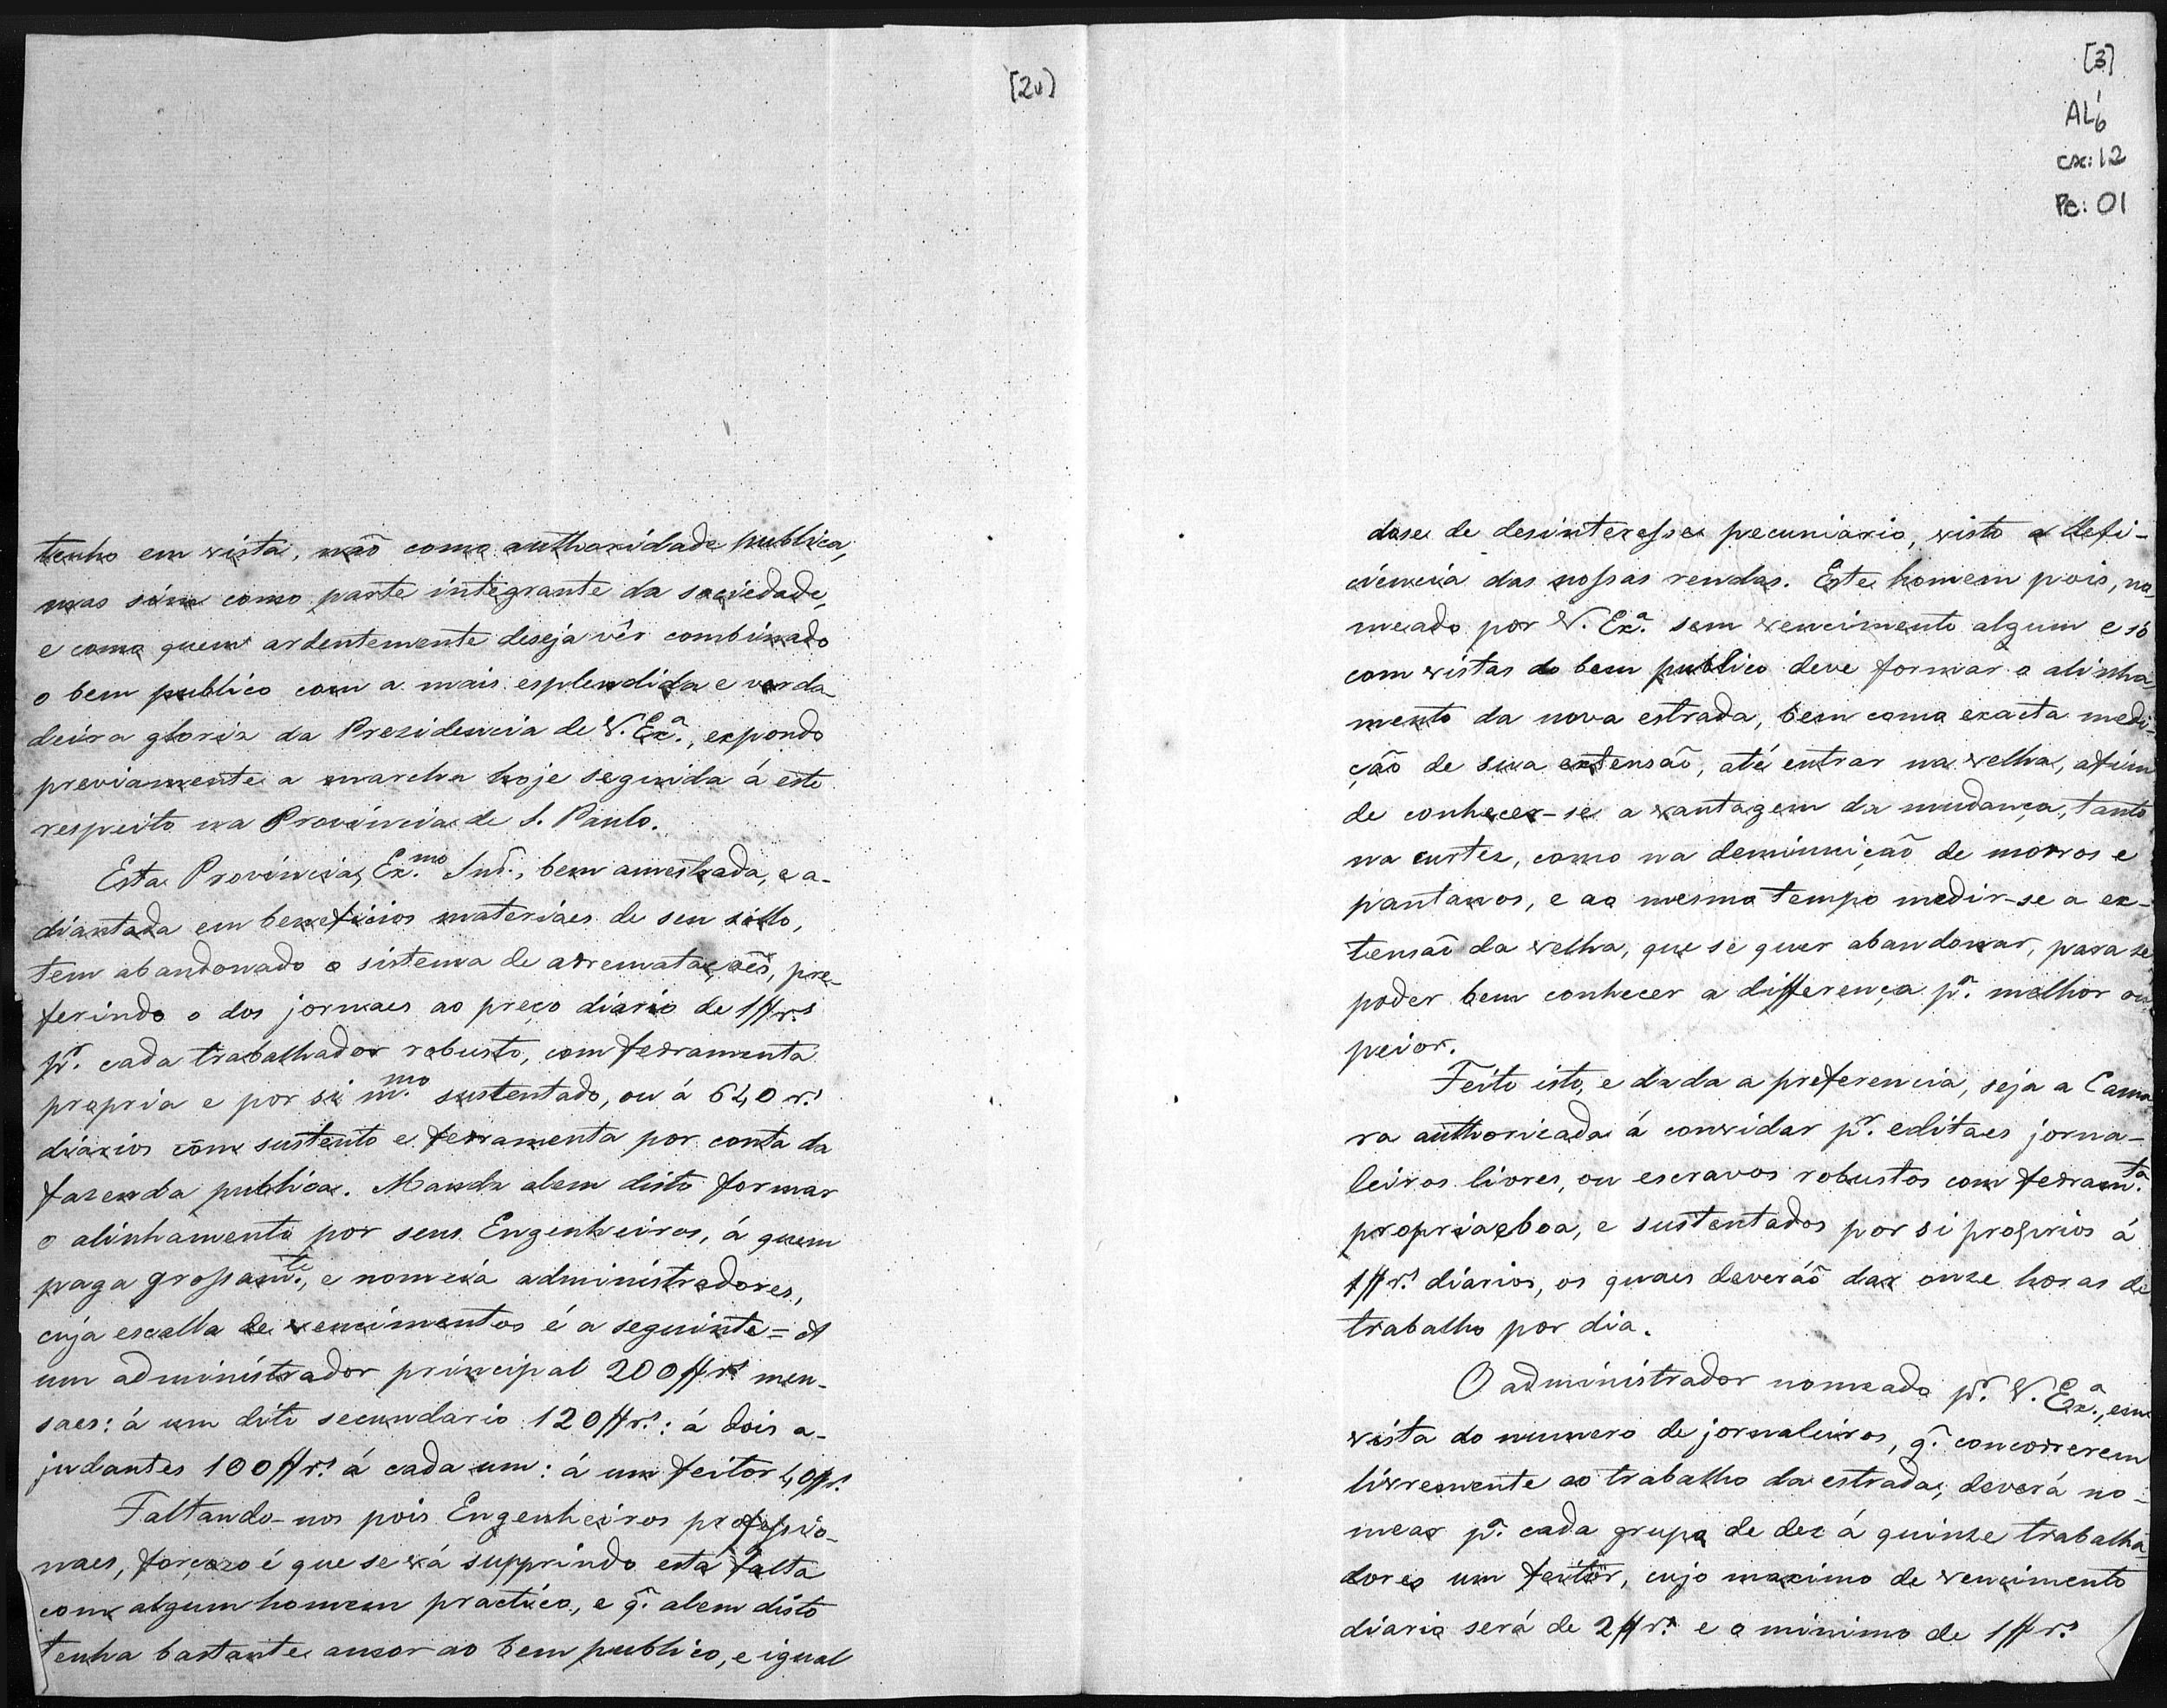 [2v]
tenho em vista, naõ como authoridade publica,
mas sim como parte integrante da sociedade,
e como quem ardentemente deseja vêr combinado
o bem publico com a mais esplendida e verda-
deira gloria da Prezidencia de V. Ex.ª, expondo
previamente a marcha hoje seguida á este
respeito na Provincia de S. Paulo.
Esta Provincia, Ex.mo Snr., bem amestrada, e a-
diantada em beneficios materiaes de seu sólo,
tem abandonado o sistema de arremataçoẽs, pre-
ferindo o dos jornaes ao preço diario de 1$r.s
pr. cada trabalhador robusto, com ferramenta
propria e por si m.mo sustentado, ou á 640 r.s
diarios com sustento e ferramenta por conta da
fazenda publica. Manda alem disto formar
o alinhamento por seus Engenheiros, á quem
paga grossam.te, e nomeia administradores,
cuja escalla de vencimentos é a seguinte = A
um administrador principal 200$r.s men-
saes: á um dito secundario 120$r.s: á dois a-
judantes 100$r.s á cada um: á um feitor 40$r.s
Faltando-nos pois Engenheiros professio-
naes, forçozo é que se vá supprindo esta falta
com algum homem practico, e q. alem disto
tenha bastante amor ao bem publico, e igual
[3]
AL6
cx: 12
Pc: 01
dose de desinteresse pecuniario, visto a defi-
ciencia das nossas rendas. Este homem pois, no-
meado por V. Ex.ª sem vencimento algum e só
com vistas do bem publico deve formar o alinha-
mento da nova estrada, bem como exacta medi-
ção de sua extensaõ, até entrar na velha, afim
de conhecer-se a vantagem da mudança, tanto
na curtez, como na deminuiçaõ de morros e
pantanos, e ao mesmo tempo medir-se a ex-
tensaõ da velha, que se quer abandonar, para se
poder bem conhecer a differença p.ª melhor ou
peior.
Feito isto, e dada a preferencia, seja a Cama-
ra authorizada á convidar pr. editaes jorna-
leiros livres, ou escravos robustos com ferram.ta
propria e boa, e sustentados por si proprios á
1$r.s diarios, os quaes deveráõ dar onze horas de
trabalho por dia.
O administrador nomeado pr. V. Ex.ª, em
vista do numero de jornaleiros, q. concorrerem
livremente ao trabalho da estrada, deverá no-
mear p.ª cada grupo de dez á quinze trabalha-
dores um feitôr, cujo maximo de vencimento
diario será de 2$r.s e o minimo de 1$r.s